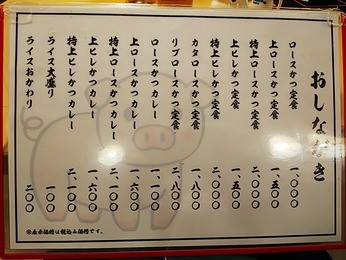 おしながき
ロースかつ定食 一、〇〇〇
上ロースかつ定食 一、五〇〇
特上ロースかつ定食 二、〇〇〇
上ヒレかつ定食 一、五〇〇
特上ヒレかつ定食 二、〇〇〇
カタロースかつ定食 一、八〇〇
リブロースかつ定食 二、八〇〇
ロースかつカレー 一、一〇〇
上ロースかつカレー 一、六〇〇
特上ロースかつカレー 二、一〇〇
上ヒレかつカレー 一、六〇〇
特上ヒレかつカレー 二、一〇〇
ライス大盛り 一〇〇
ライスおかわり 二〇〇
※表示価格は税込み価格です。